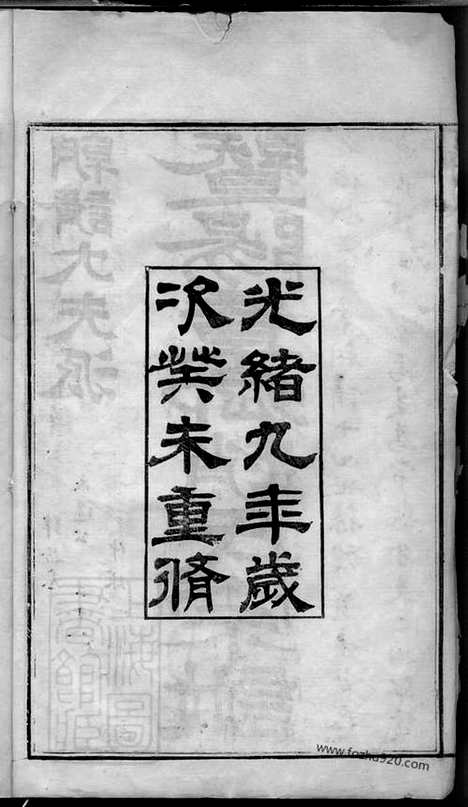 光緒九年歲
次癸未重脩
www.fozhu920.com